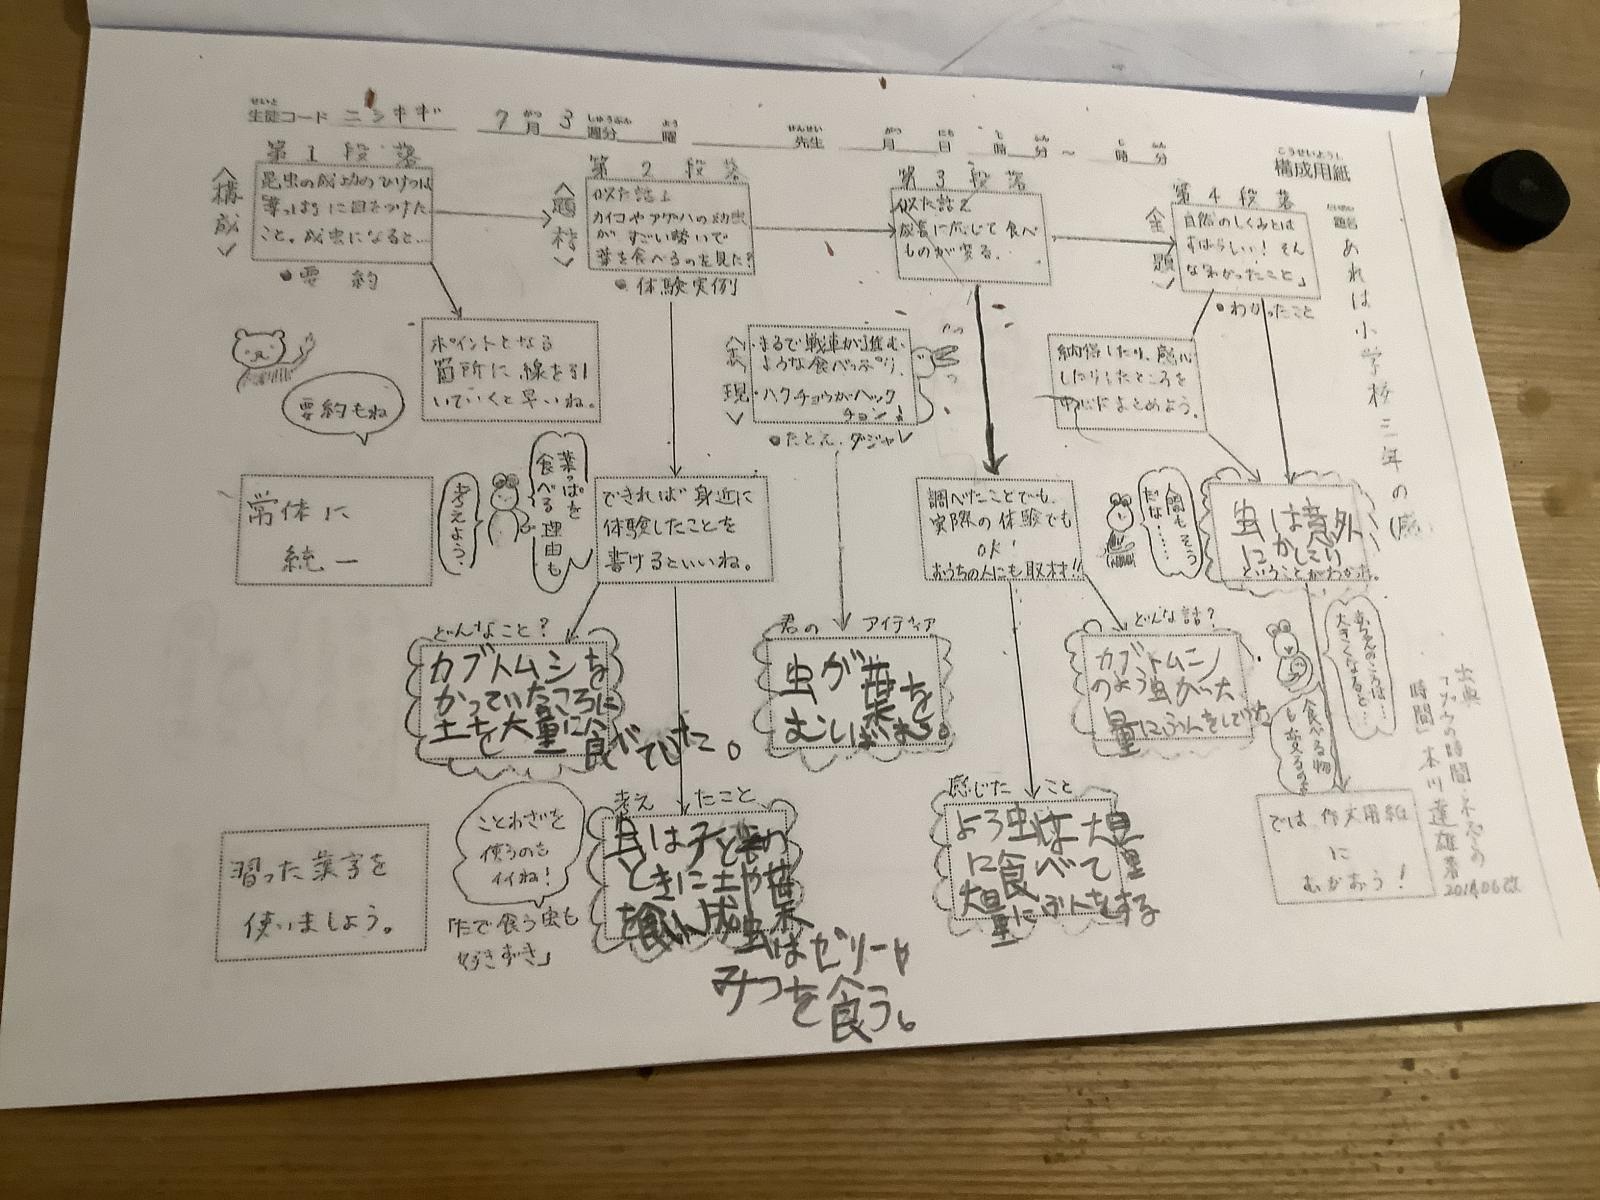 せいと
生徒コード ニシキギ
7月 3週分 曜 先生 月 日 時 分 ~ 時 分
がつ しゅうぶん よう せんせい がつ にち じ ふん じ ふん
こうせいようし
構成用紙
だいめい
題名
あれは小学校三年の(感)
第1段落
<構成>
昆虫の成功のひけつは
葉っぱに目をつけた
こと。成虫になると…
●要約
第2段落
<題材>
似た話1
カイコやアゲハの幼虫
がすごい勢いで
葉を食べるのを見た?
●体験実例
第3段落
似た話2
成長に応じて食べ
ものが変る。
第4段落
<主題>
自然のしくみとは
すばらしい!そん
なわかったこと」
●わかったこと
ポイントとなる
箇所に線を引
いていくと早いね。
要約もね
<表現>
・まるで戦車が進む
ような食べっぷり。
・ハクチョウがハック
チョン!
●たとえ、ダジャレ
納得したり、感心
したりしたところを
中心にまとめよう。
常体に
統一
葉っぱを
食べる理由も
考えよう。
できれば身近に
体験したことを
書けるといいね。
調べたことでも、
実際の体験でも
OK!
おうちの人にも取材!!
人間もそう
だな……
虫は意外
にかしこい
ということがわかった。
どんなこと?
カブトムシを
かっていたころに
土を大量に食べていた。
君のアイディア
虫が葉を
むしばむ。
どんな話?
カブトムシ
のよう虫が大
量にふんをしていた
赤ちゃんのころは…
大きくなると…
食べる物
も変るのよ
習った漢字を
使いましょう。
ことわざを
使うのも
イイね!
「たで食う虫も
好きずき」
考えたこと
虫は子どもの
ときに土や葉
を食い成虫はゼリーや
みつを食う。
感じたこと
よう虫は大量
に食べて
大量にふんをする
では作文用紙
に
むかおう!
出典
「ゾウの時間・ネズミの
時間」本川達雄著
2014.06改